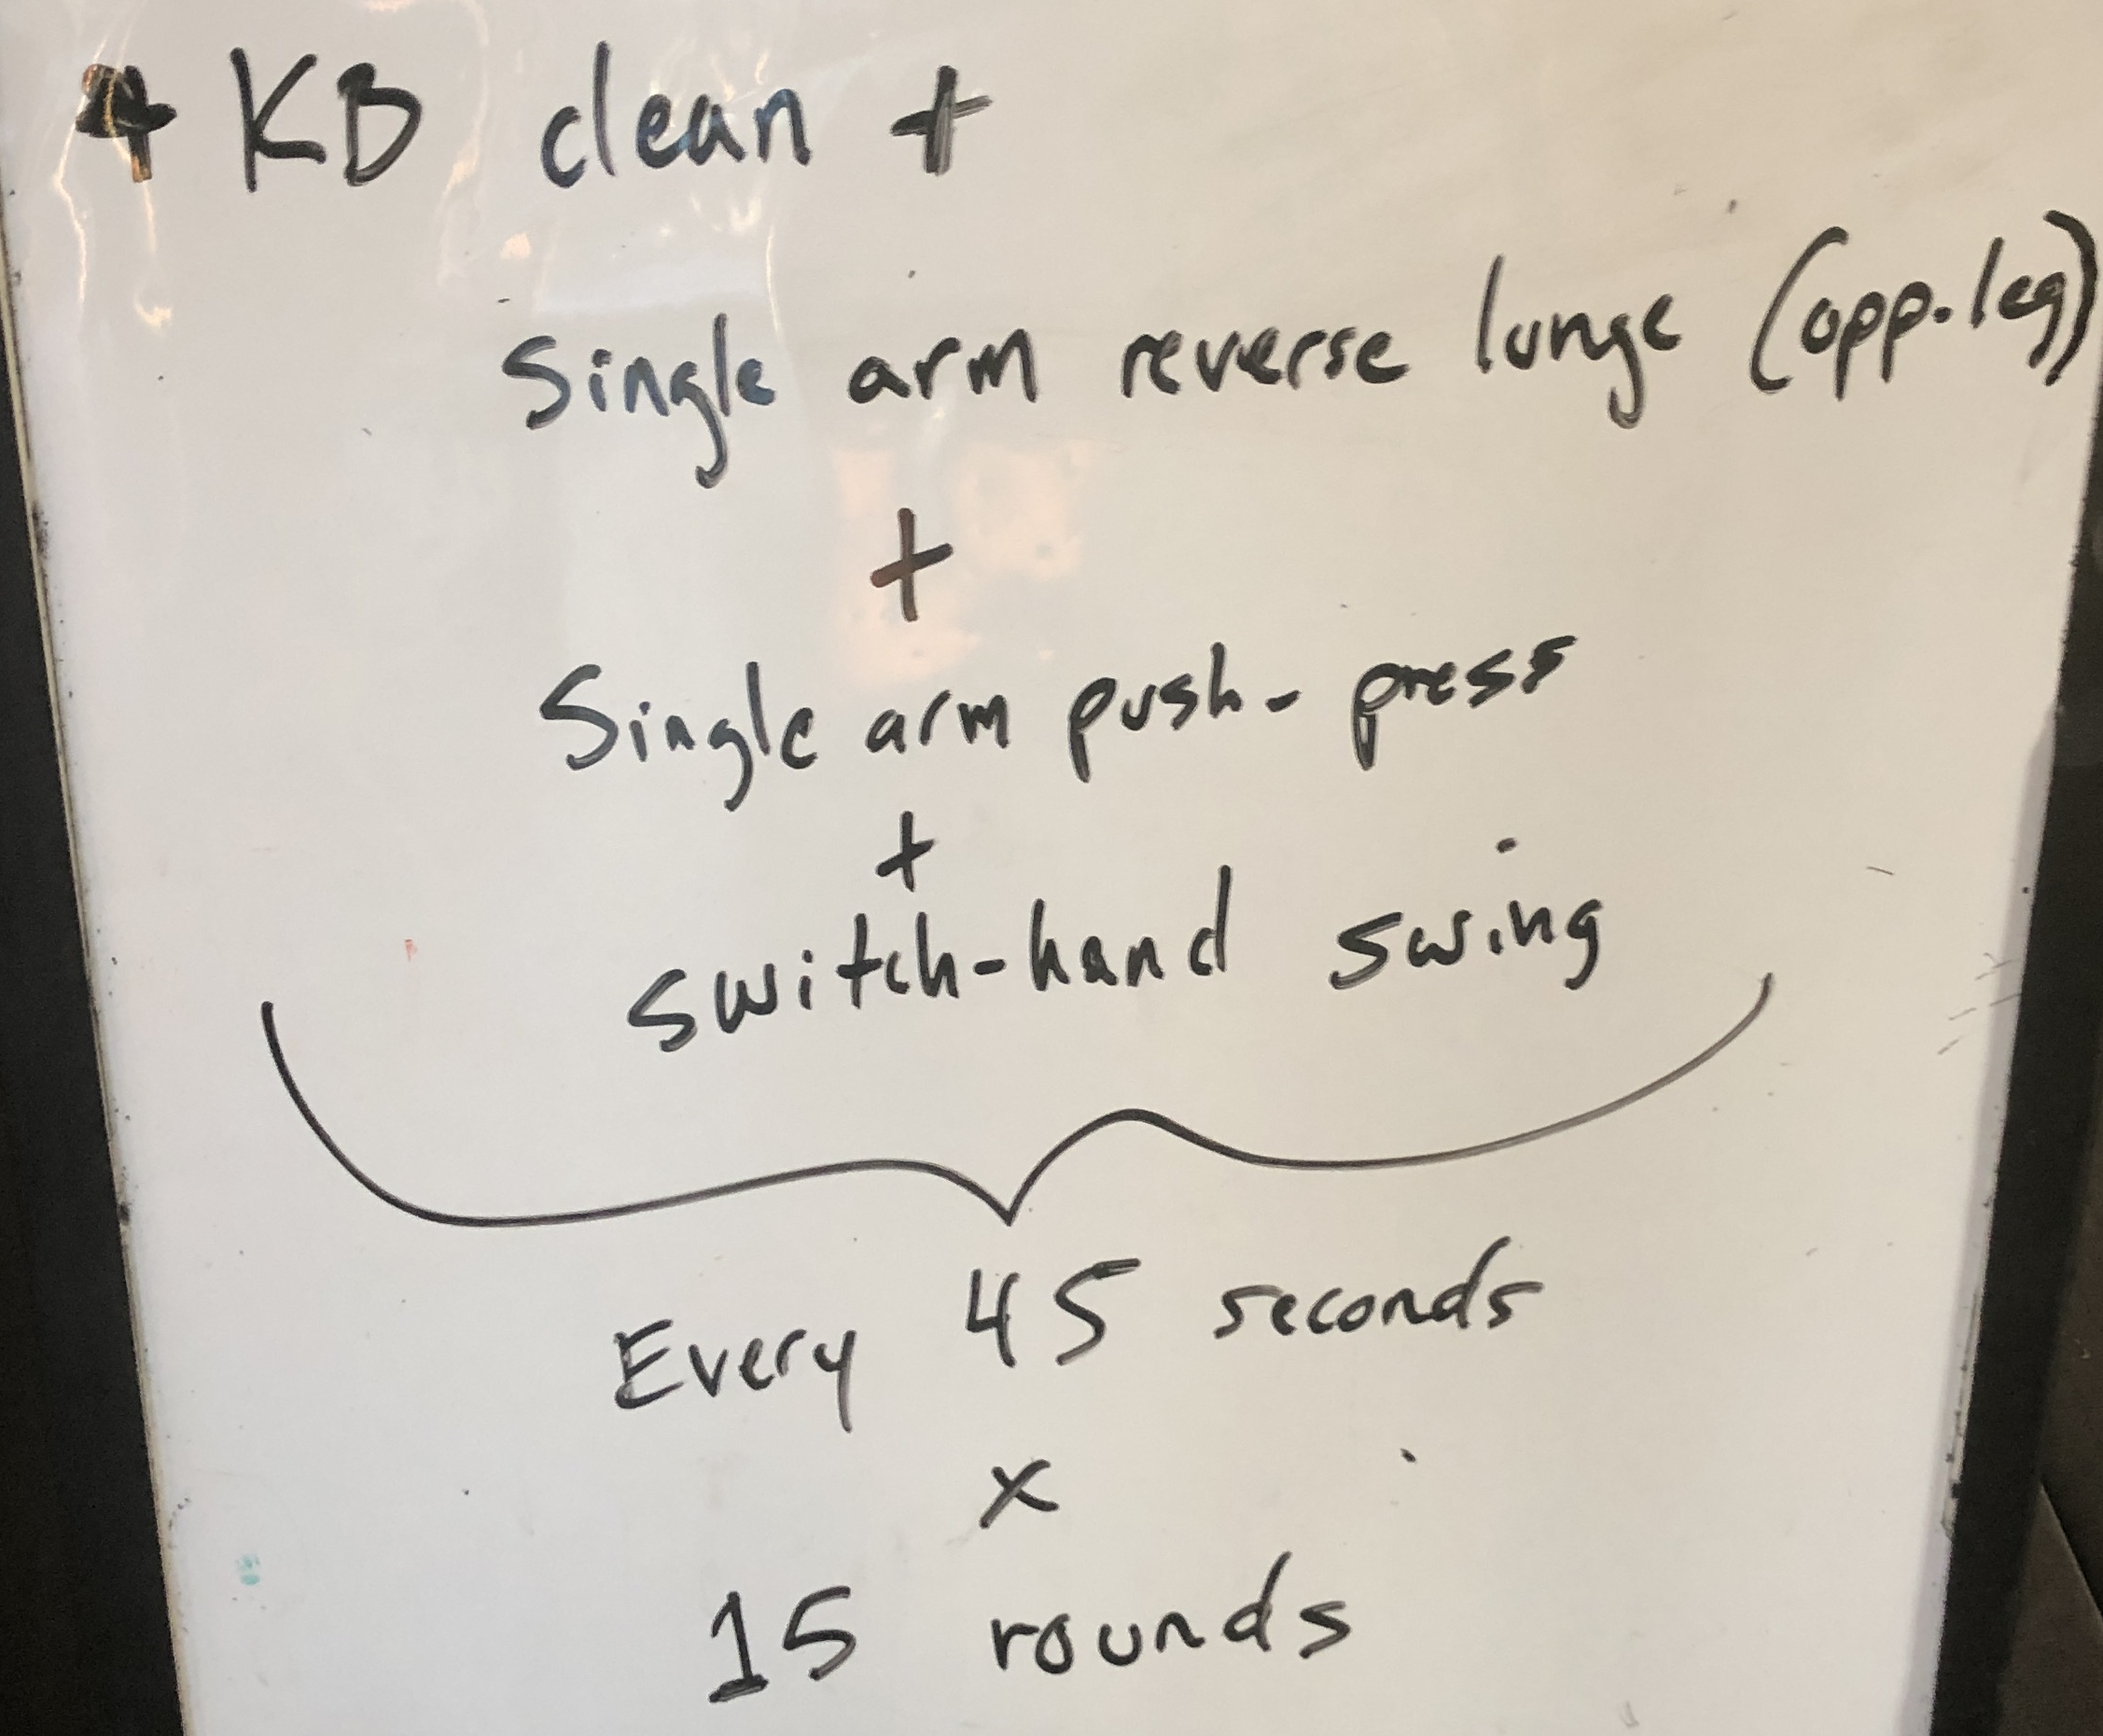 4 KB clean +
Single arm reverse lunge (opp. leg)
+
Single arm push-press
+
switch-hand swing
Every 45 seconds
x
15 rounds